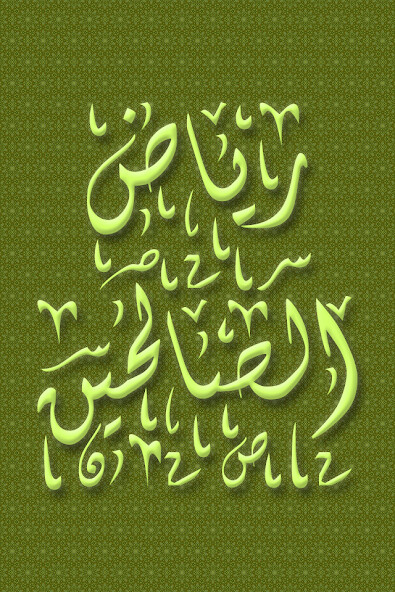 رياض
الصالحين